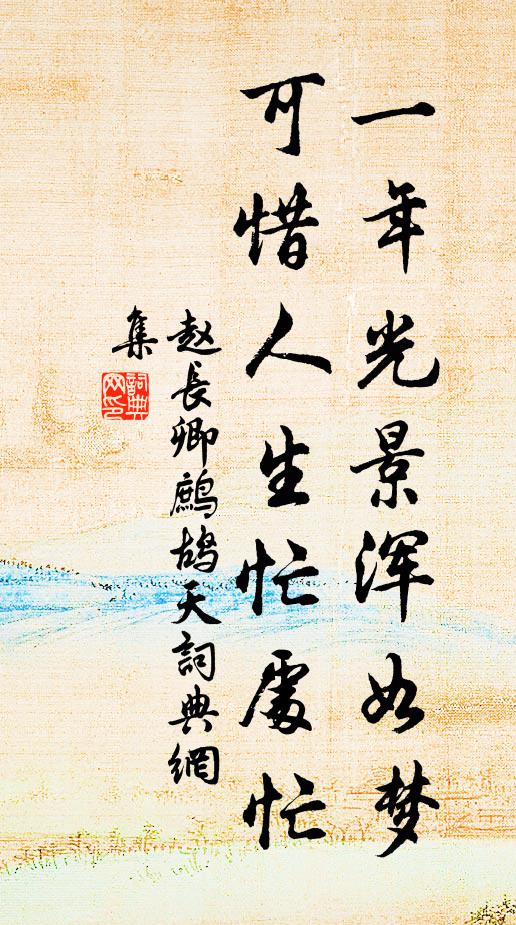 一年光景浑如梦
可惜人生忙處忙
赵長卿鷓鸪天詞典網
集
詞典
网印